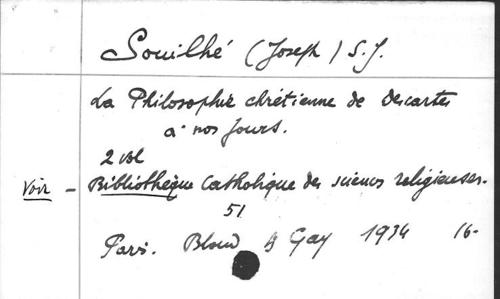 Souilhé (Joseph) S.J.
La Philosophie chrétienne de Descartes
à nos jours.
2 vol
Voir - Bibliothèque Catholique des sciences religieuses.
51
Paris. Bloud & Gay 1934 16-